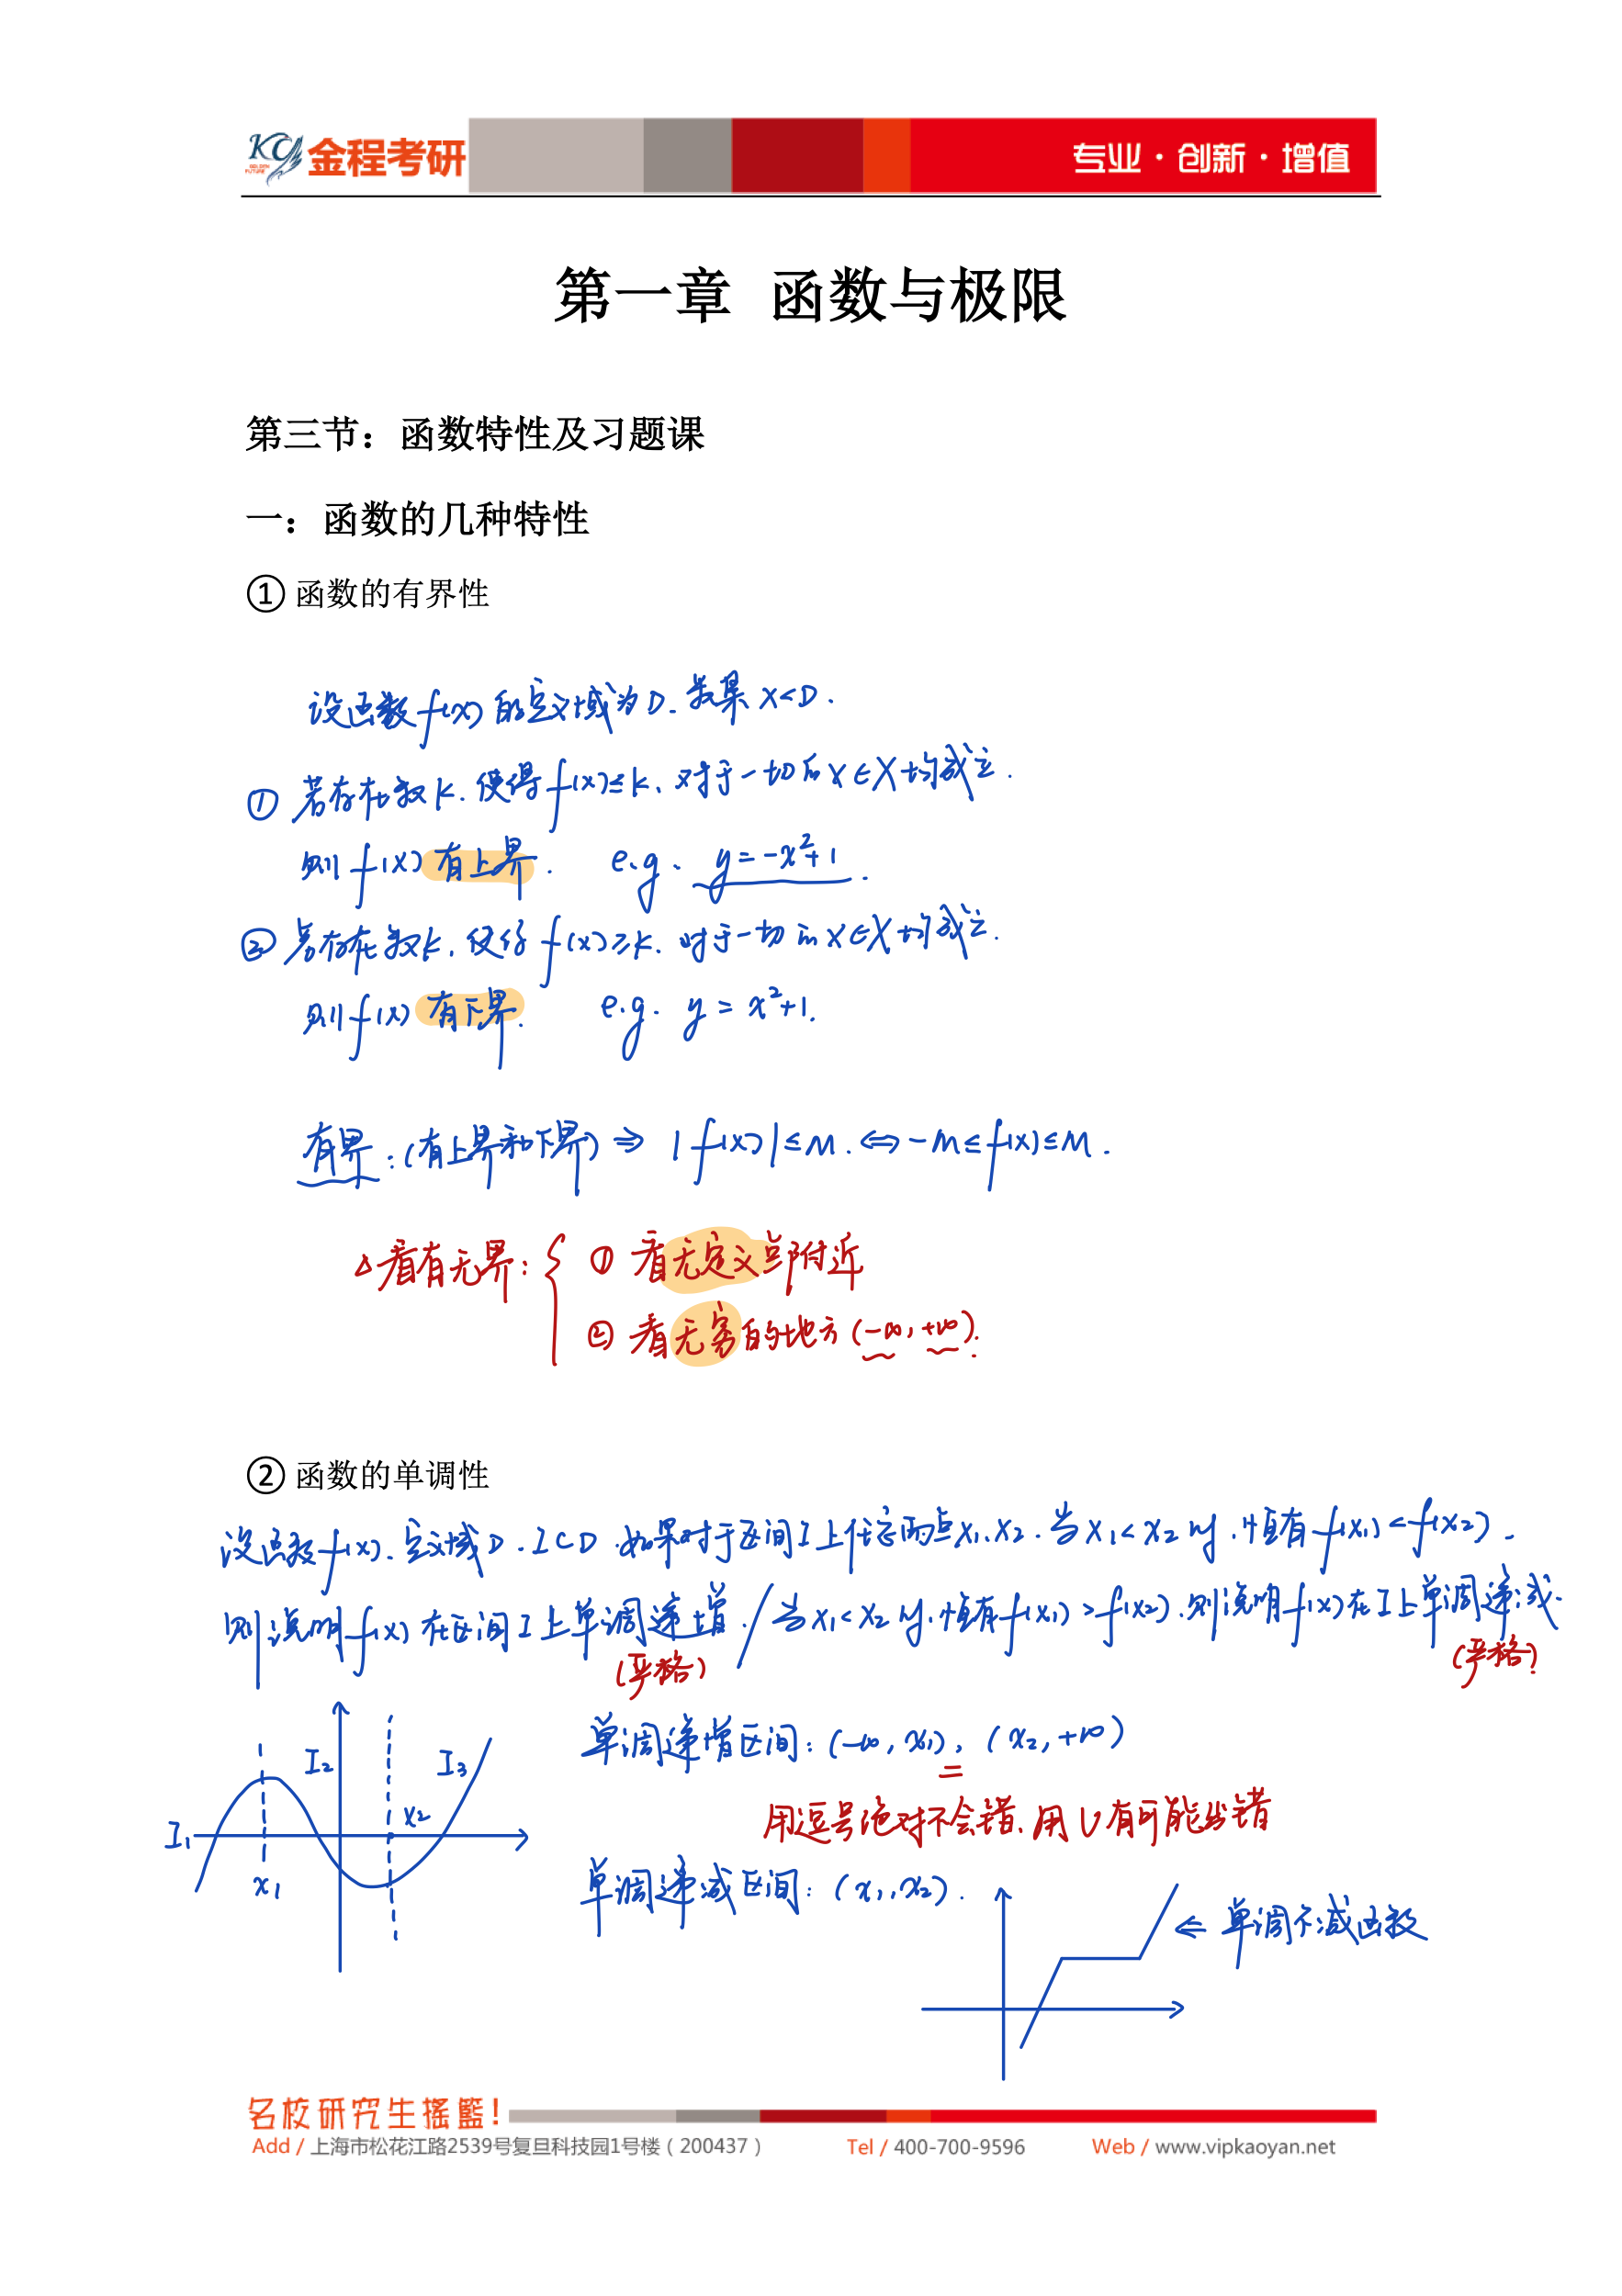 KC 金程考研 专业·创新·增值
GOLDEN FUTURE
第一章 函数与极限
第三节：函数特性及习题课
一：函数的几种特性
① 函数的有界性
设函数f(x)的定义域为D.数集X⊂D.
① 若存在数k.使得f(x)≤k、对于一切的x∈X均成立.
则f(x)有上界. e.g. y=-x²+1.
② 若存在数k.使得f(x)≥k.对于一切的x∈X均成立.
则f(x)有下界. e.g. y=x²+1.
有界:(有上界和下界)⇒ |f(x)|≤M.⇔-M≤f(x)≤M.
△看有无界: ① 看无定义点附近
② 看无穷的地方(-∞,+∞).
② 函数的单调性
设函数f(x).定义域D.I⊂D.如果对于区间I上任意两点x₁、x₂.当x₁<x₂时.恒有f(x₁)<f(x₂).
则说明f(x)在区间I上单调递增./当x₁<x₂时.恒有f(x₁)>f(x₂).则说明f(x)在I上单调递减.
(严格) (严格)
I₁ I₂ I₃ x₁ x₂
单调递增区间:(-∞,x₁), (x₂,+∞)
用逗号绝对不会错、用∪有可能出错
单调递减区间:(x₁,x₂).
← 单调不减函数
名校研究生摇篮!
Add / 上海市松花江路2539号复旦科技园1号楼（200437） Tel / 400-700-9596 Web / www.vipkaoyan.net